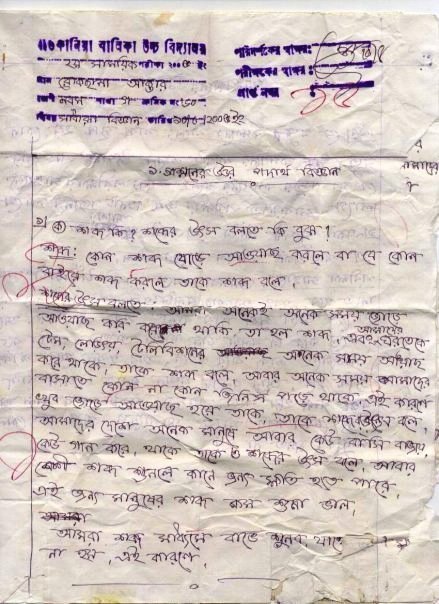 সাতকানিয়া বালিকা উচ্চ বিদ্যালয়
২য় সাময়িক পরীক্ষা ২০০৫ ইং
নাম রোকছানা আক্তার
শ্রেণী নবম শাখা গ ক্রমিক নং
বিষয় সাধারণ বিজ্ঞান তারিখ
পরিদর্শকের স্বাক্ষর:
পরীক্ষকের স্বাক্ষর:
প্রাপ্ত নম্বর
১ নং প্রশ্নের উত্তর পদার্থ বিজ্ঞান
১) ক) শব্দ কি? শব্দের উৎস বলতে কি বুঝ?
শব্দ: কোন শব্দ জোড়ে আওয়াছ করলে বা যে কোন
বাইরে শব্দ করলে তাকে শব্দ বলে।
শব্দের উৎস বলতে: আমরা অনেকই অনেক সময় জোড়ে
আওয়াছ করি থাকি, তা হল শব্দ, আমাদের
টেন, টেলিবিশনের অনেক সময় আওয়াছ
করে থাকে, তাকে শব্দ বলে, আবার অনেক সময় আমাদের
বাসাতে কোন না কোন জিনিস পড়ে থাকে, এই কারণে
খুব জোড়ে আওয়াছ হয়ে তাকে, তাকে শব্দের উৎস বলে,
আমাদের দেশে অনেক মানুষ আবার কেউ বাঁসি বাজায়,
কেউ গান করে, থাকে তাকে ও শব্দের উৎস বলে, আবার
বেশী শব্দ শুনলে কানে জন্য ক্ষতি হতে পারে,
এই জন্য মানুষের শব্দ কম শুনা ভাল,
আমরা
আমরা শব্দ
না হয়, এই কারণে,